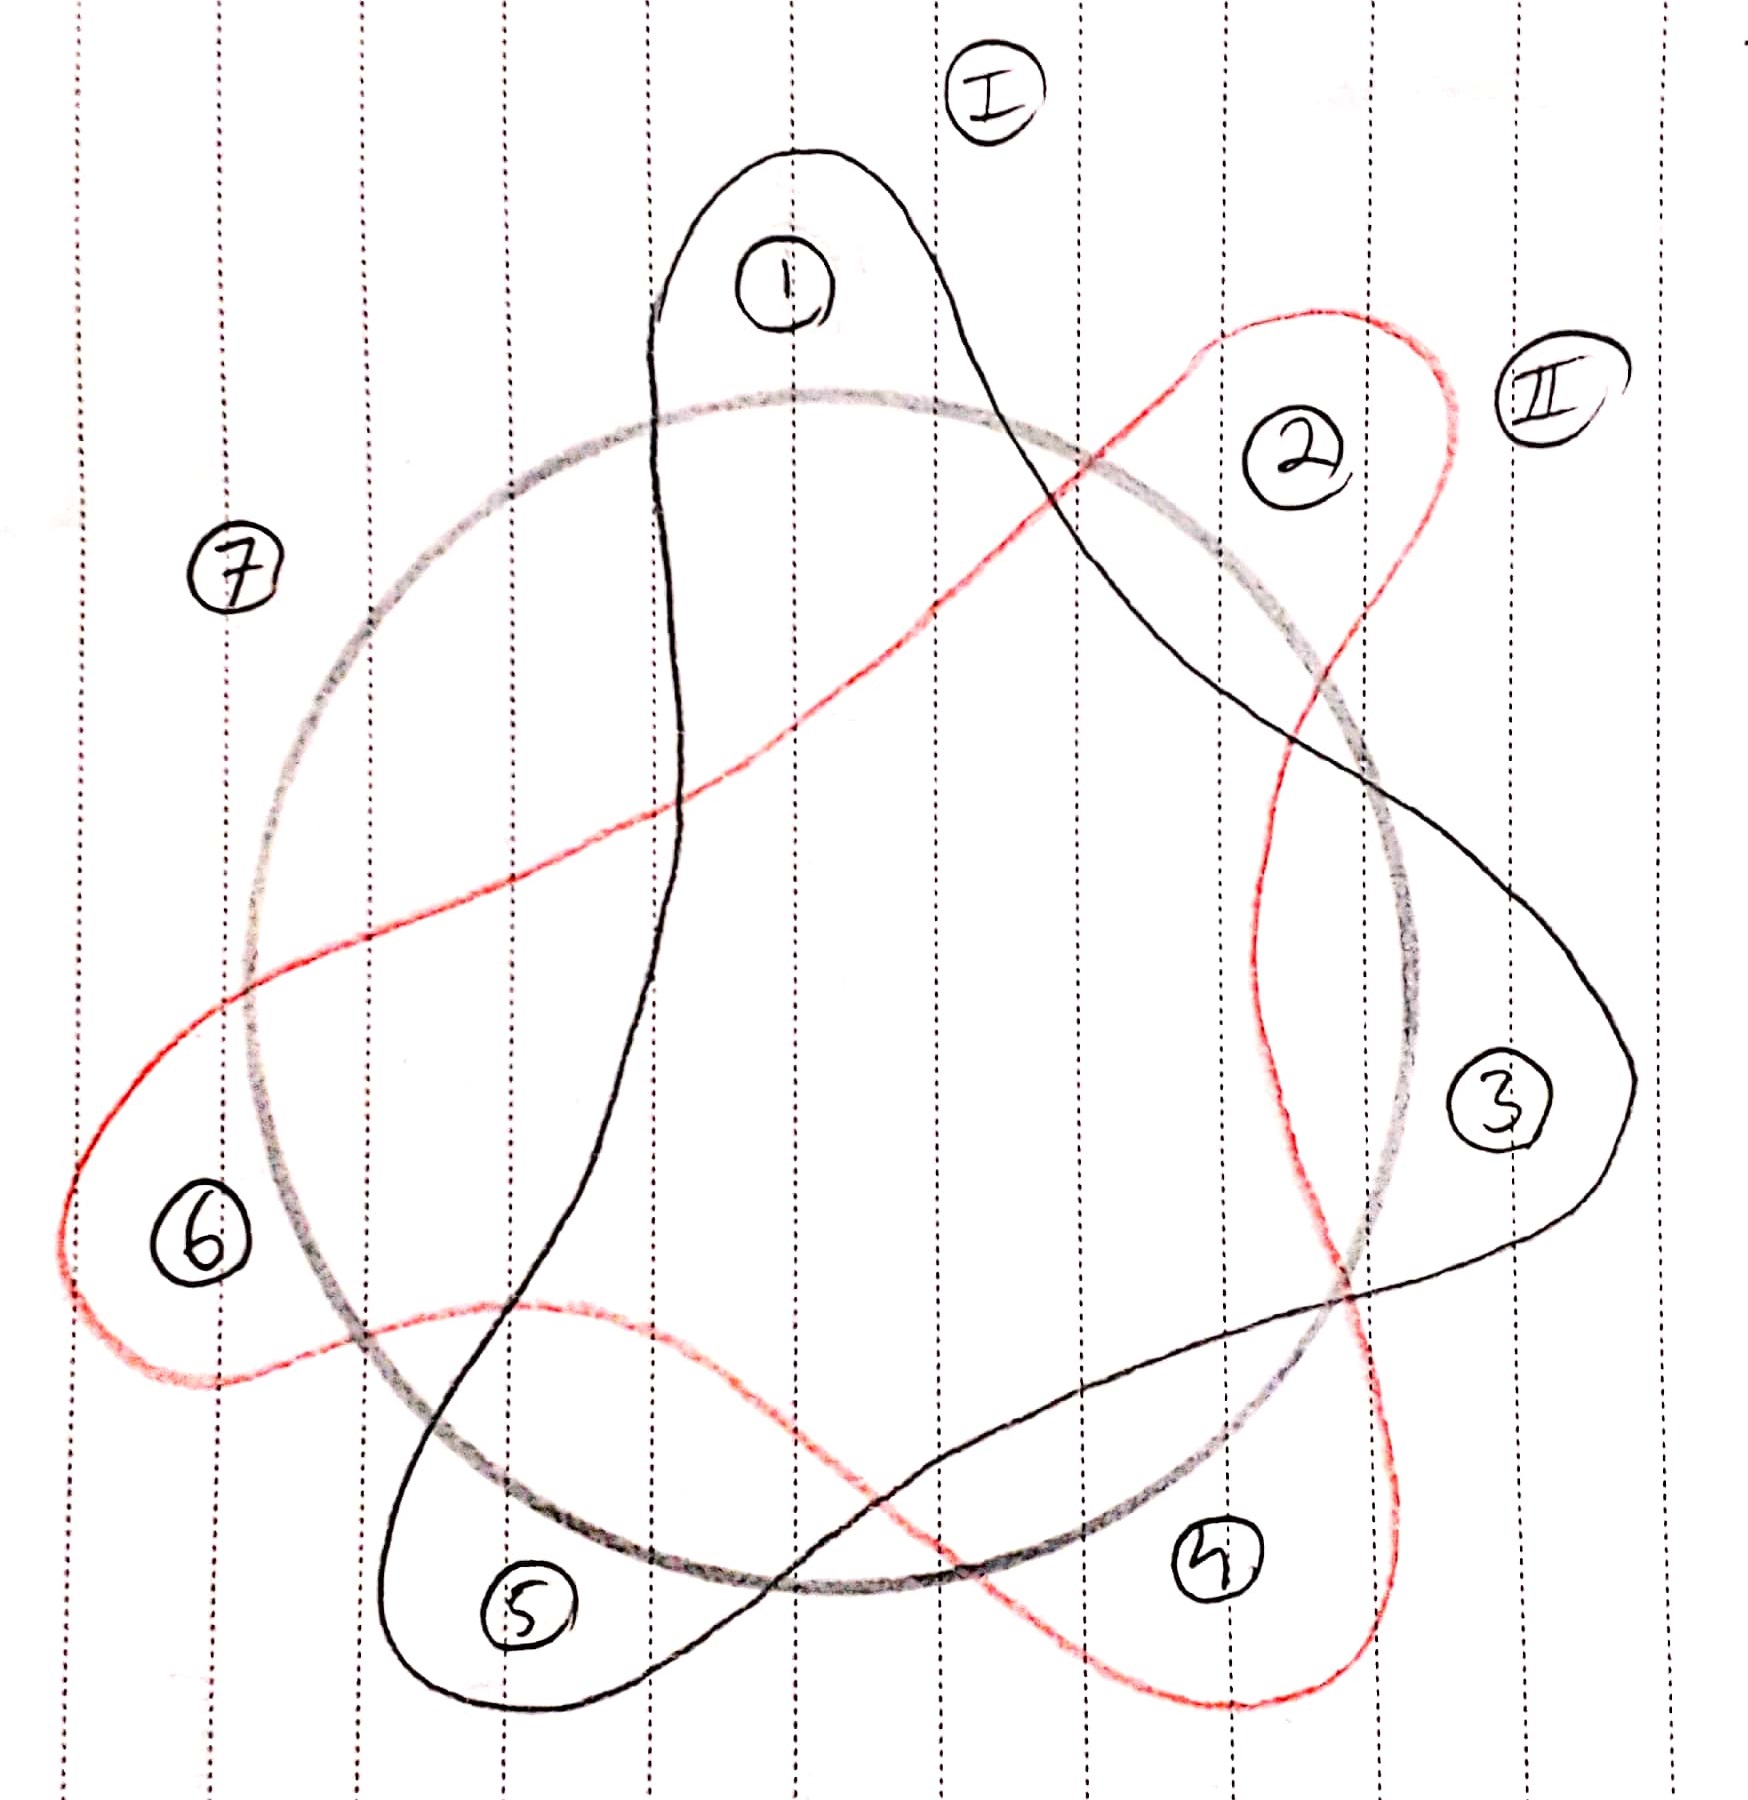 I
1
II
2
7
3
6
4
5